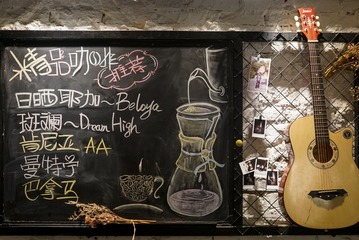 精品咖啡
推荐
日晒耶加~Beloya
斑斓~Dream High
肯尼亚 AA
曼特宁
巴拿马